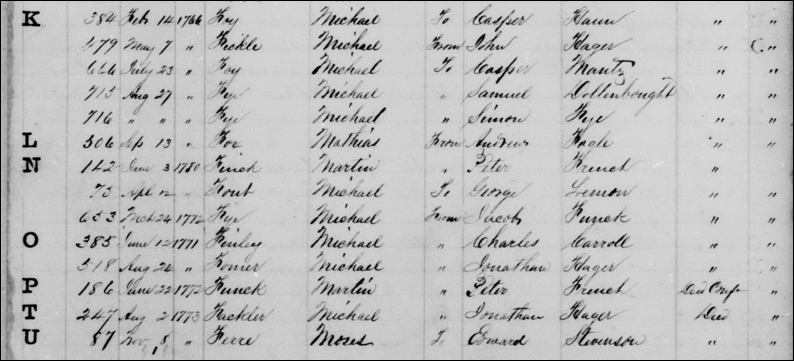 K 384 Feb 14 1766 Foy Michael To Casper Haun " "
479 May 7 " Fickle Michael From John Hager " "
666 July 23 " Foy Michael To Casper Mantz " "
713 Aug 27 " Fye Michael " Samuel Dollinbought " "
716 " " " Fye Michael " Simon Fye " "
L 506 Sp 13 " Fox Mathias From Andrew Fogle " "
N 142 June 3 1780 Finck Martin " Peter French " "
73 Apl 12 " Fout Michael To George Lemon " "
653 Mch 24 1772 Fye Michael From Jacob Funck " "
O 385 June 12 1771 Finley Michael " Charles Carroll " "
518 Aug 24 " Michael " Jonathan Hager " "
P 186 June 22 1772 Funck Martin " Peter French Deed "
T 247 Aug 2 1773 Fackler Michael " Jonathan Hager Deed "
U 87 Nov 8 " Ferre Moses To Edward Stevenson " "